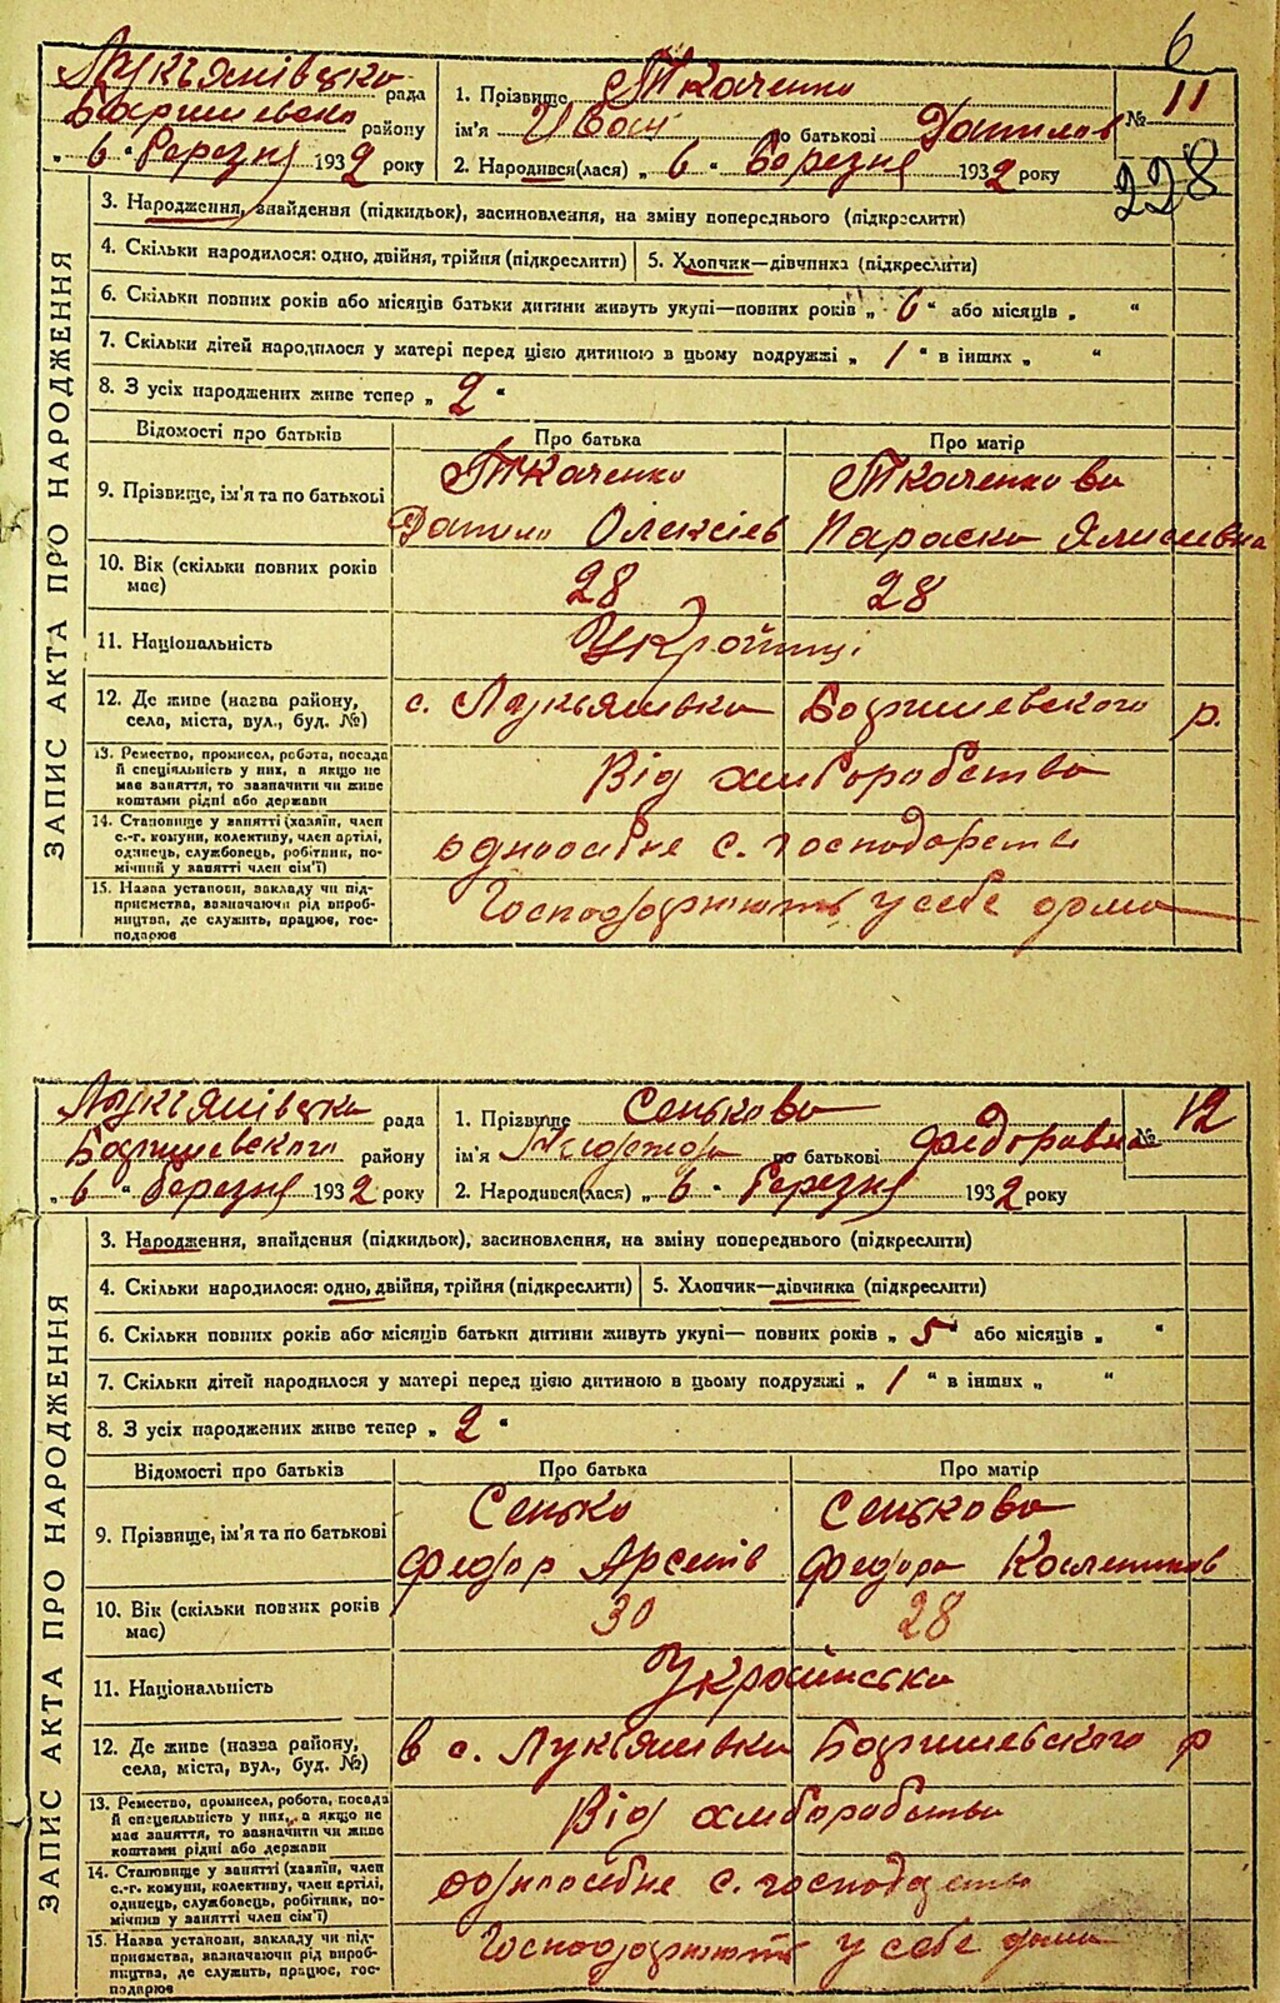 6
Лукьянівська рада
Баришевсько району
„ 6 " Березня 1932 року
1. Прізвище Ткаченко
ім'я Иван по батькові Данилов
2. Народився(лася) „ 6 " Березня 1932 року
№ 11
228
ЗАПИС АКТА ПРО НАРОДЖЕННЯ
3. Народження, знайдення (підкидьок), засиновлення, на зміну попереднього (підкреслити)
4. Скільки народилося: одно, двійня, трійня (підкреслити) 5. Хлопчик—дівчинка (підкреслити)
6. Скільки повних років або місяців батьки дитини живуть укупі—повних років „ 6 " або місяців „ "
7. Скільки дітей народилося у матері перед цією дитиною в цьому подружжі „ 1 " в інших „ "
8. З усіх народжених живе тепер „ 2 "
Відомості про батьків Про батька Про матір
9. Прізвище, ім'я та по батькові
Ткаченко Ткаченкова
Данило Олексіев Параска
10. Вік (скільки повних років має)
28 28
11. Національність Українці
12. Де живе (назва району,
села, міста, вул., буд. №)
с. Лукьянівка Баришевского р.
13. Ремество, промисел, робота, посада
й спеціяльність у них, а якщо не
має заняття, то зазначити чи живе
коштами рідні або держави
Від хліборобства
14. Становище у занятті (хазяїн, член
с.-г. комуни, колективу, член артілі,
одинець, службовець, робітник, по-
мічний у занятті член сім'ї)
одноосібне с. господарство
15. Назва установи, закладу чи під-
приємства, зазначаючи рід вироб-
ництва, де служить, працює, гос-
подарює
Господарюють у себе дома
Лукьянівська рада
Баришевского району
„ 6 " березня 1932 року
1. Прізвище Сенькова
ім'я по батькові Федоравна
2. Народився(лася) „ 6 " Березня 1932 року
№ 12
ЗАПИС АКТА ПРО НАРОДЖЕННЯ
3. Народження, знайдення (підкидьок), засиновлення, на зміну попереднього (підкреслити)
4. Скільки народилося: одно, двійня, трійня (підкреслити) 5. Хлопчик—дівчинка (підкреслити)
6. Скільки повних років або місяців батьки дитини живуть укупі— повних років „ 5 " або місяців „ "
7. Скільки дітей народилося у матері перед цією дитиною в цьому подружжі „ 1 " в інших „ "
8. З усіх народжених живе тепер „ 2 "
Відомості про батьків Про батька Про матір
9. Прізвище, ім'я та по батькові
Сенько Сенькова
Федор Арсенів Федора
10. Вік (скільки повних років
має)
30 28
11. Національність Українська
12. Де живе (назва району,
села, міста, вул., буд. №)
в с. Лукьянівка Баришевского р
13. Ремество, промисел, робота, посада
й спецеяльність у них, а якщо не
має заняття, то зазначити чи живе
коштами рідні або держави
Від хліборобства
14. Становище у занятті (хазяїн, член
с.-г. комуни, колективу, член артілі,
одинець, службовець, робітник, по-
мічник у занятті член сім'ї)
одноосібне с. господарство
15. Назва установи, закладу чи під-
приємства, зазначаючи рід вироб-
ництва, де служить, працює, гос-
подарює
Господарюють у себе дома